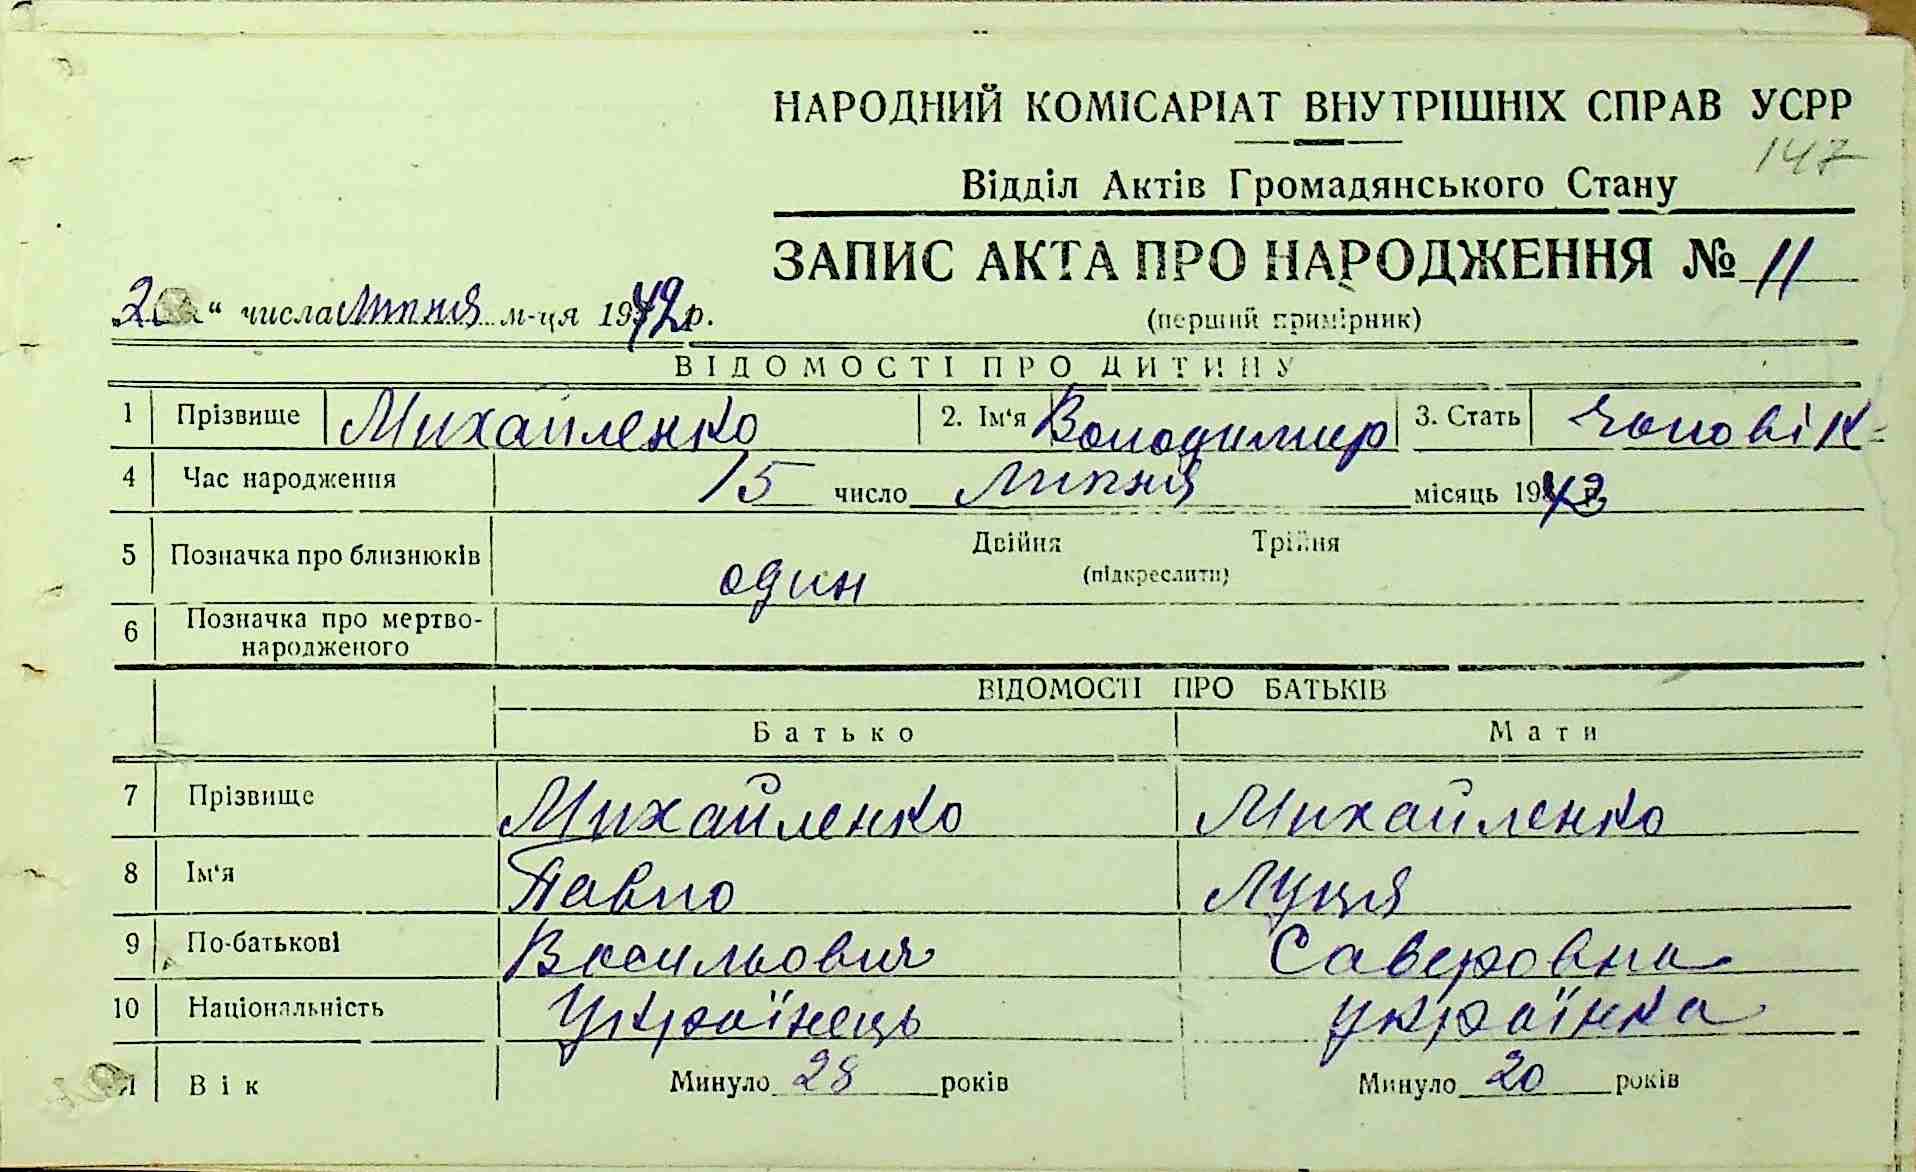 НАРОДНИЙ КОМІСАРІАТ ВНУТРІШНІХ СПРАВ УСРР
147
Відділ Актів Громадянського Стану
ЗАПИС АКТА ПРО НАРОДЖЕННЯ № 11
(перший примірник)
“ числа липня м-ця 1942 р.
ВІДОМОСТІ ПРО ДИТИНУ
1 Прізвище Михайленко 2. Ім‘я Володимир 3. Стать Чоловік
4 Час народження 15 число липня місяць 1942 р.
5 Позначка про близнюків один Двійня Трійня
(підкреслити)
6 Позначка про мертво-
народженого
ВІДОМОСТІ ПРО БАТЬКІВ
Батько Мати
7 Прізвище Михайленко Михайленко
8 Ім‘я Павло Луция
9 По-батькові Васильович Саверовна
10 Національність Українець українка
11 Вік Минуло 28 років Минуло 20 років